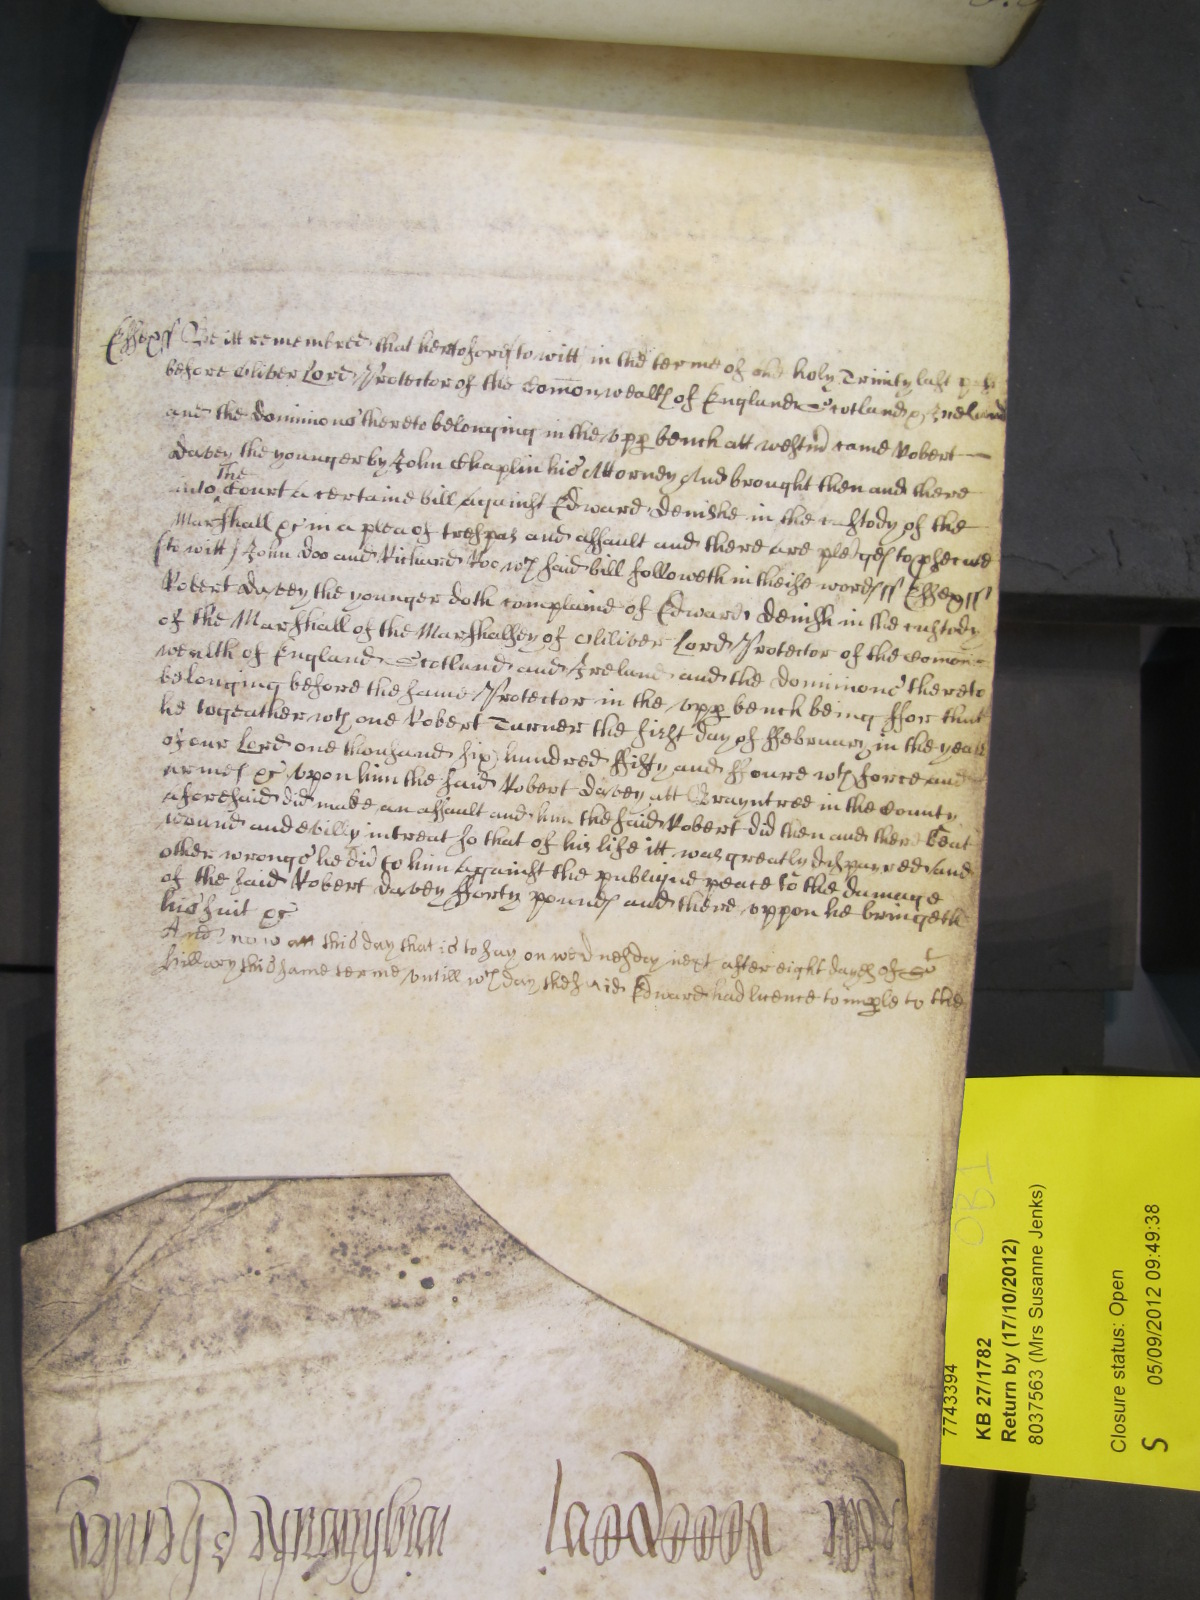 Essex ss Be itt remembred that heretofore to witt in the terme of the holy Trinity last past
before Oliver Lord Protector of the Comonwealth of England Scotland & Ireland
and the dominions thereto belonging in the upp bench att Westm came Robert
Davey the younger by John Chaplin his Attorney And brought then and there
into The Court a certaine bill against Edward Denishe in the custody of the
Marshall &c in a plea of trespas and assault and there are pledges to psecute
(to witt) John Doo and Richard Roo wch said bill followeth in theise words ss Essex ss
Robert Davey the younger doth complaine of Edward Denish in the custody
of the Marshall of the Marshalsey of Oliver Lord Protector of the Comon
wealth of England Scotland and Ireland and the dominions thereto
belonging before the same Protector in the upp bench being ffor that
he togeather wth one Robert Turner the first day of ffebruary in the yeare
of our Lord one thousand six hundred ffifty and ffoure wth force and
armes &c upon him the said Robert Davey att Brayntree in the County
aforesaid did make an assault and him the said Robert did then and there beat
wound and evilly intreat so that of his life itt was greatly dispayred And
other wrongs he did to him against the publique peace to the damage
of the said Robert Davey fforty pounds and there uppon he bringeth
his suit &c
And now att this day that is to say on wednesday next after eight dayes of St
hillary this same terme untill wch day the said Edward had licence to imple to the
7743394
KB 27/1782
Return by (17/10/2012)
8037563 (Mrs Susanne Jenks)
Closure status: Open
05/09/2012 09:49:38
S
OB1